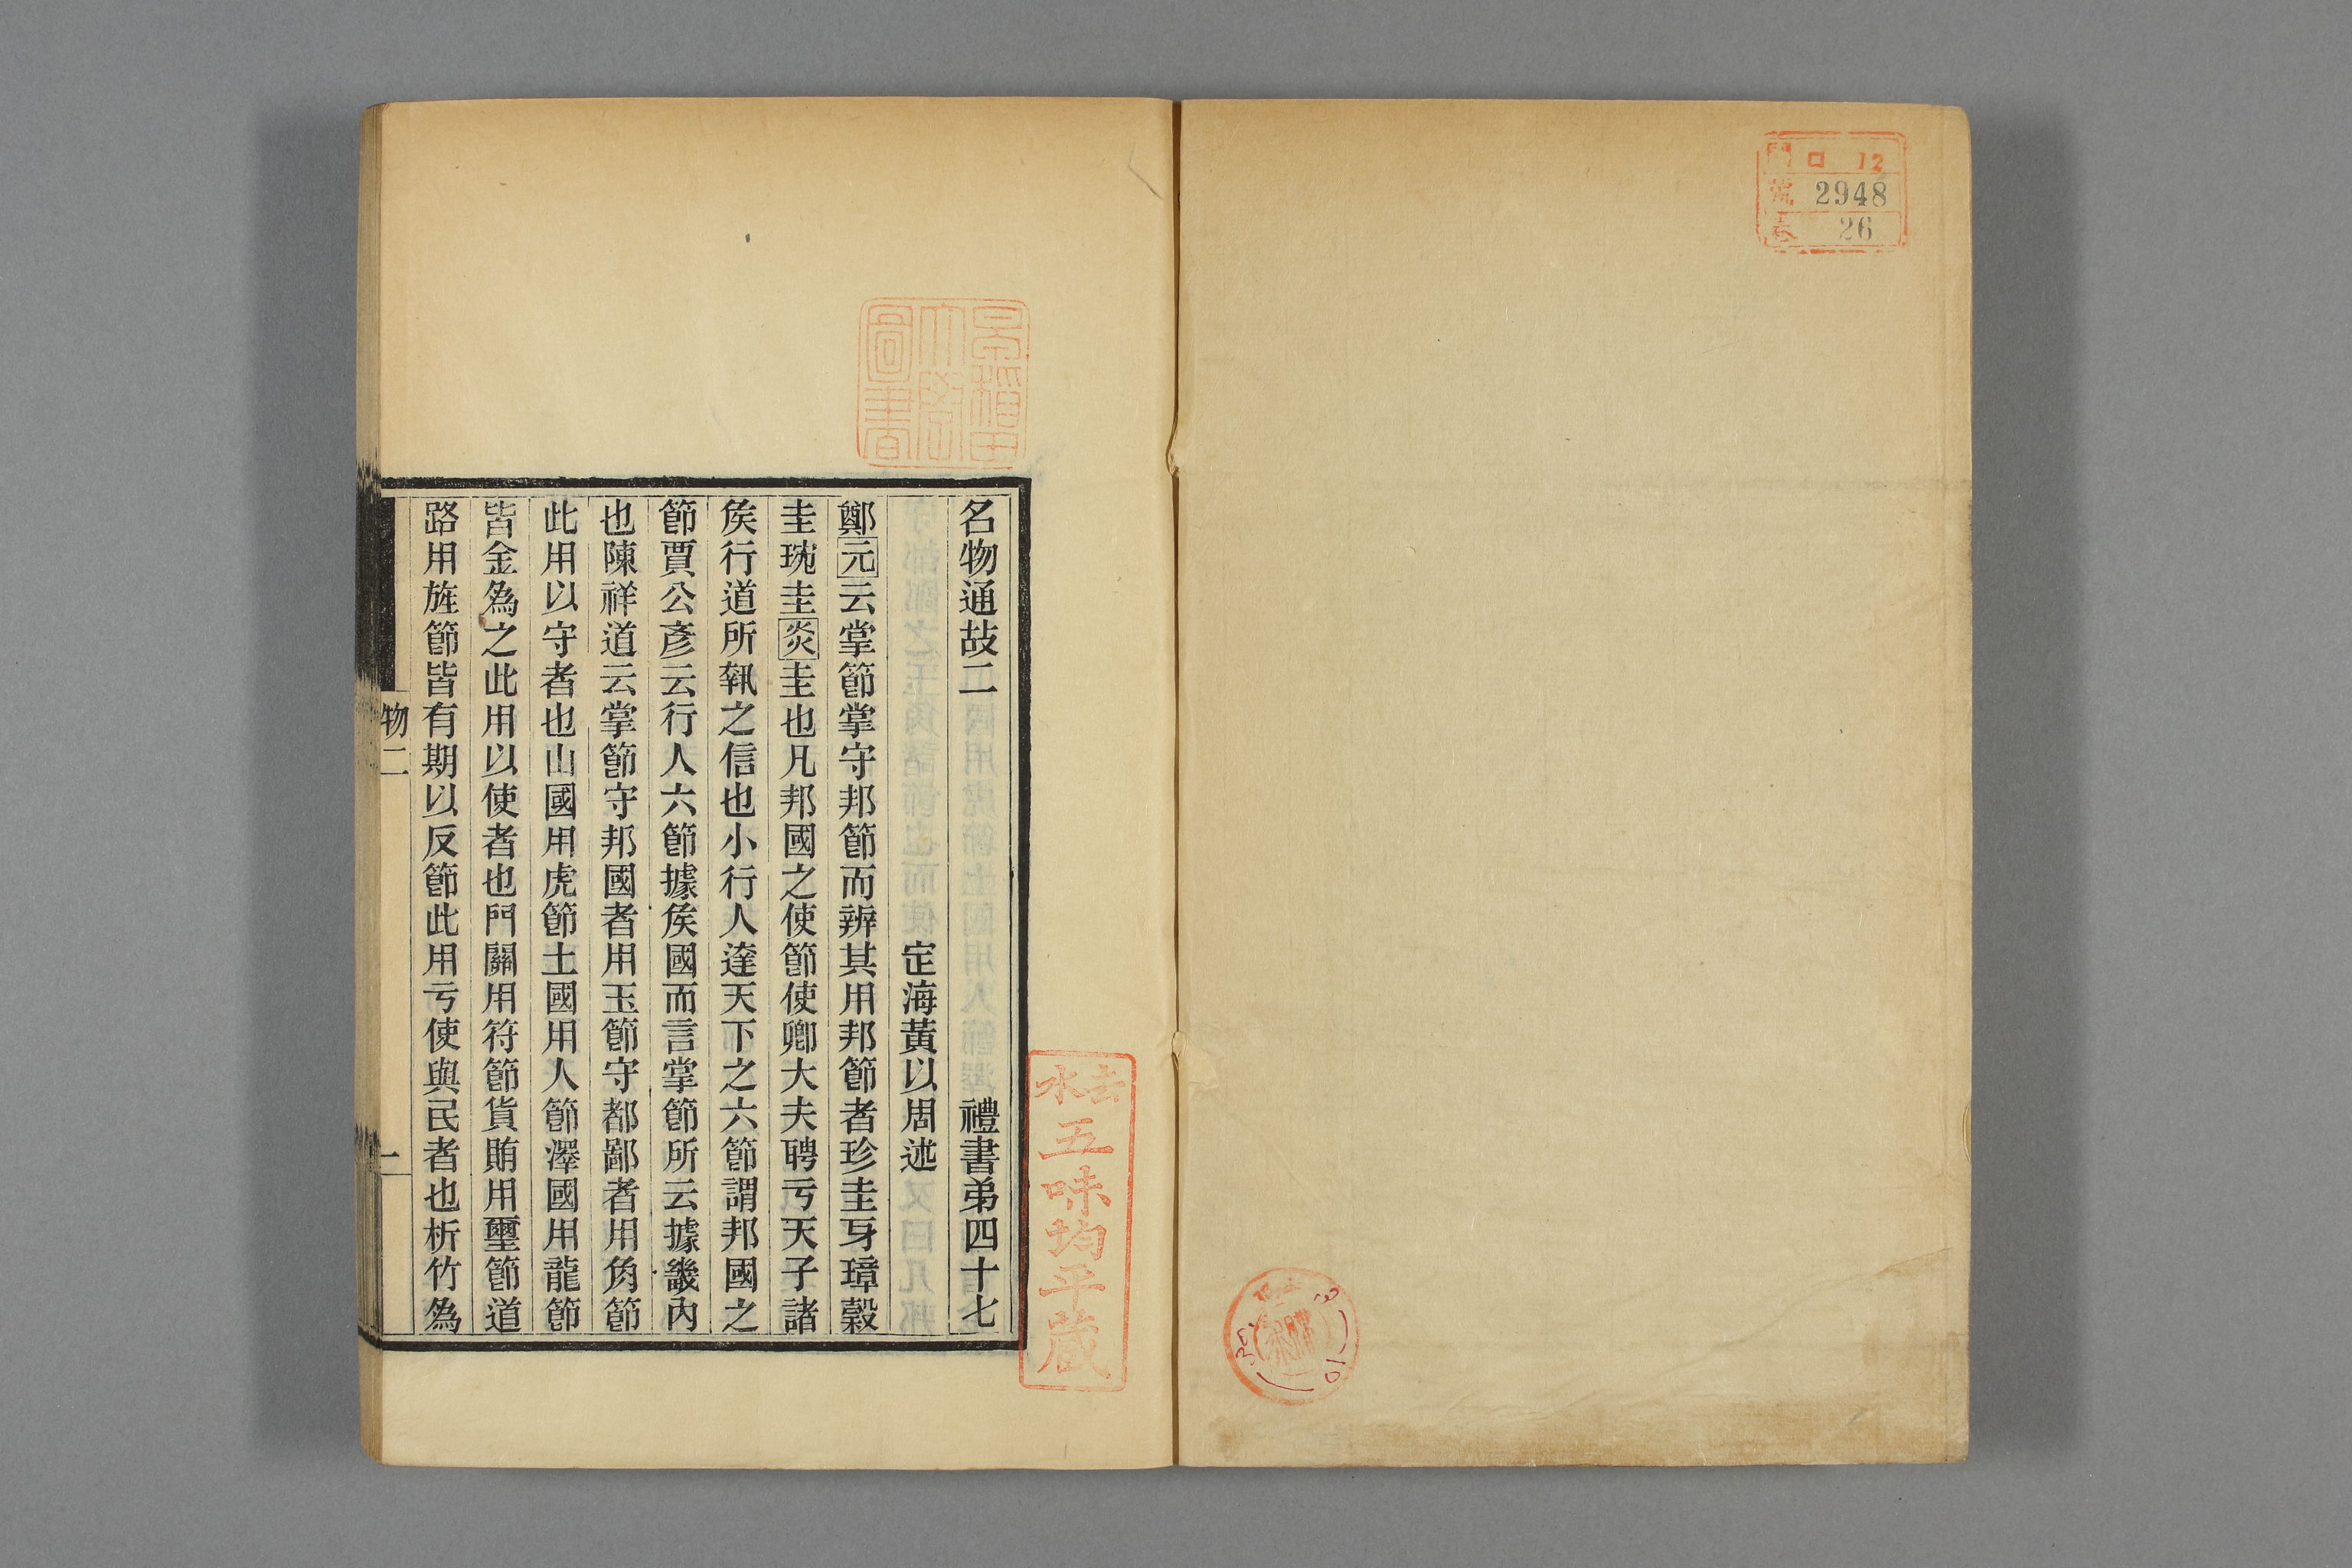 門 ロ 12
號 2948
卷 26
早稻田
大學
圖書
名物通故二 禮書弟四十七
定海黃以周述
鄭元云掌節掌守邦節而辨其用邦節者珍圭牙璋穀
圭琬圭炎圭也凡邦國之使節使卿大夫聘亏天子諸
矦行道所執之信也小行人達天下之六節謂邦國之
節賈公彥云行人六節據矦國而言掌節所云據畿內
也陳祥道云掌節守邦國者用玉節守都鄙者用角節
此用以守者也山國用虎節土國用人節澤國用龍節
皆金為之此用以使者也門關用符節貨賄用璽節道
路用旌節皆有期以反節此用亏使與民者也析竹為
物二
一
去水
五味均平蔵